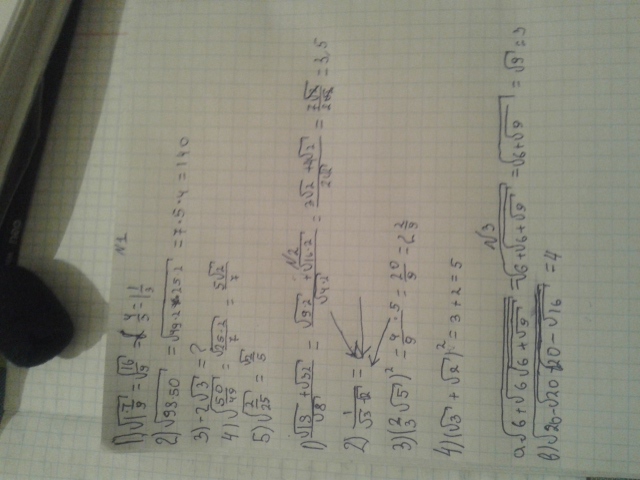 N1
1) √(1 7/9) = √(16/9) = 4/3 = 1 1/3
2) √(98·50) = √(49·2·25·2) = 7·5·4 = 140
3) -2√3 = ?
4) √(50/49) = √(25·2)/7 = 5√2/7
5) √(2/25) = √2/5
N2
1) (√18 + √32)/√8 = (√(9·2) + √(16·2))/√(4·2) = (3√2 + 4√2)/(2√2) = 7√2/(2√2) = 3,5
2)
3) (2/3 √5)² = 4/9 · 5 = 20/9 = 2 2/9
4) (√3 + √2)² = 3 + 2 = 5
N3
а √(6+√(6√(6+√9))) = √(6+√(6+√9)) = √(6+√9) = √9 = 3
в) √(20-√(20+20-√16)) = 4